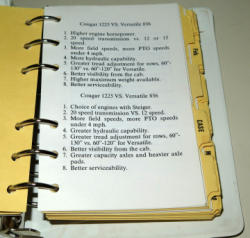 Cougar 1225 VS. Versatile 856
1. Higher engine horsepower.
2. 20 speed transmission vs. 12 or 15
speed.
3. More field speeds, more PTO speeds
under 4 mph.
4. More hydraulic capability.
5. Greater tread adjustment for rows, 60"-
130" vs. 60"-120" for Versatile.
6. Better visibility from the cab.
7. Higher maximum weight available.
8. Better serviceability.
Cougar 1225 VS. Versatile 836
1. Choice of engines with Steiger.
2. 20 speed transmission VS. 12 speed.
3. More field speeds, more PTO speeds
under 4 mph.
4. Greater hydraulic capability.
5. Greater tread adjustment for rows, 60"-
130" vs. 60"-120" for Versatile.
6. Better visibility from the cab.
7. Greater capacity axles and heavier axle
pads.
8. Better serviceability.
CASE
IH